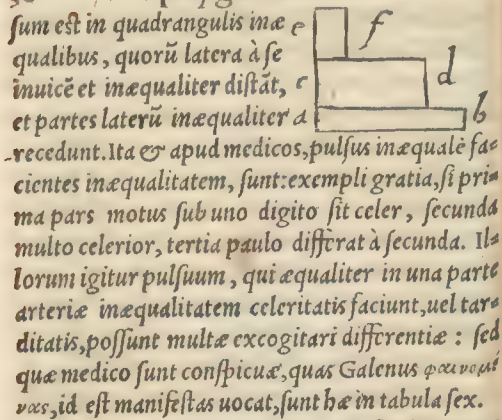 sum est in quadrangulis inæ e f
qualibus, quorũ latera à se
inuicẽ et inæqualiter distãt, c d
et partes laterũ inæqualiter a b
recedunt. Ita & apud medicos, pulsus inæqualẽ fa=
cientes inæqualitatem, sunt: exempli gratia, si pri=
ma pars motus sub uno digito sit celer, secunda
multo celerior, tertia paulo differat à secunda. Il=
lorum igitur pulsuum, qui æqualiter in una parte
arteriæ inæqualitatem celeritatis faciunt, uel tar=
ditatis, possunt multæ excogitari differentiæ : sed
quæ medico sunt conspicuæ, quas Galenus φαινομέ
νας, id est manifestas uocat, sunt hæ in tabula sex.